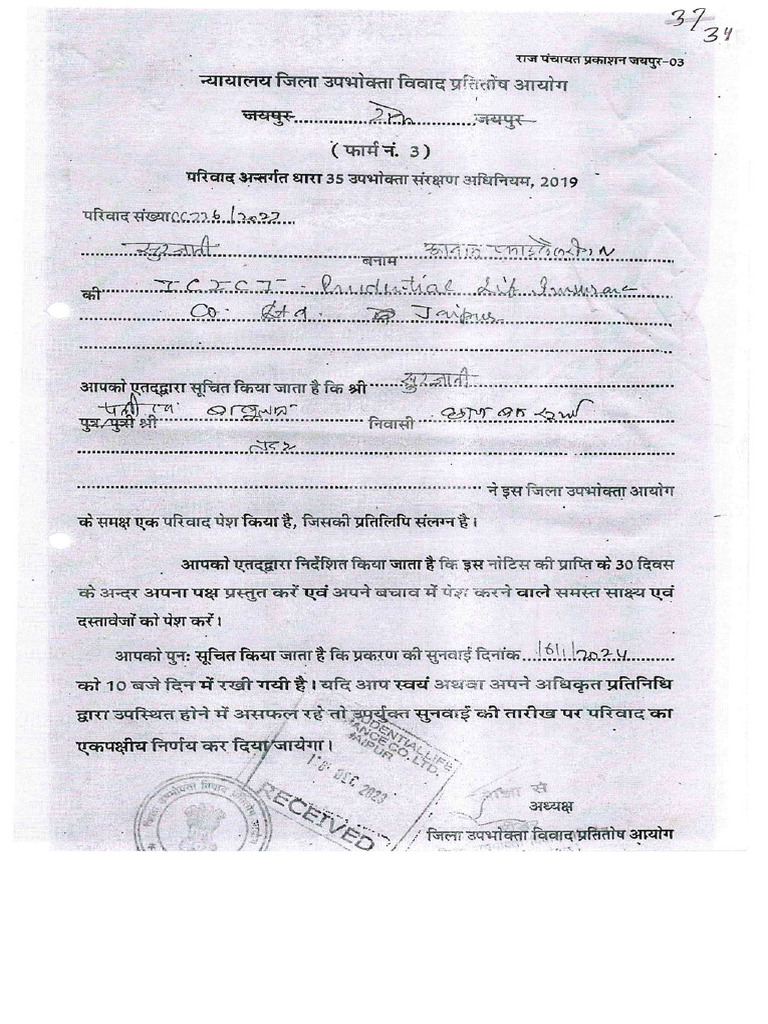 37
34
राज पंचायत प्रकाशन जयपुर-03
न्यायालय जिला उपभोक्ता विवाद प्रतितोष आयोग
जयपुर जयपुर
( फार्म नं. 3 )
परिवाद अन्तर्गत धारा 35 उपभोक्ता संरक्षण अधिनियम, 2019
परिवाद संख्या
सुरज्ञानी बनाम
की I C I C I - Prudential Life Insurance
Co. Ltd. Jaipur
आपको एतदद्वारा सूचित किया जाता है कि श्री सुरज्ञानी
पुत्र/पुत्री श्री निवासी
ने इस जिला उपभोक्ता आयोग
के समक्ष एक परिवाद पेश किया है, जिसकी प्रतिलिपि संलग्न है।
आपको एतदद्वारा निर्देशित किया जाता है कि इस नोटिस की प्राप्ति के 30 दिवस
के अन्दर अपना पक्ष प्रस्तुत करें एवं अपने बचाव में पेश करने वाले समस्त साक्ष्य एवं
दस्तावेजों को पेश करें।
आपको पुनः सूचित किया जाता है कि प्रकरण की सुनवाई दिनांक 16/1/2024
को 10 बजे दिन में रखी गयी है। यदि आप स्वयं अथवा अपने अधिकृत प्रतिनिधि
द्वारा उपस्थित होने में असफल रहे तो उपर्युक्त सुनवाई की तारीख पर परिवाद का
एकपक्षीय निर्णय कर दिया जायेगा।
PRUDENTIAL LIFE
CO. LTD.
JAIPUR
DEC 2023
RECEIVED
अध्यक्ष
जिला उपभोक्ता विवाद प्रतितोष आयोग